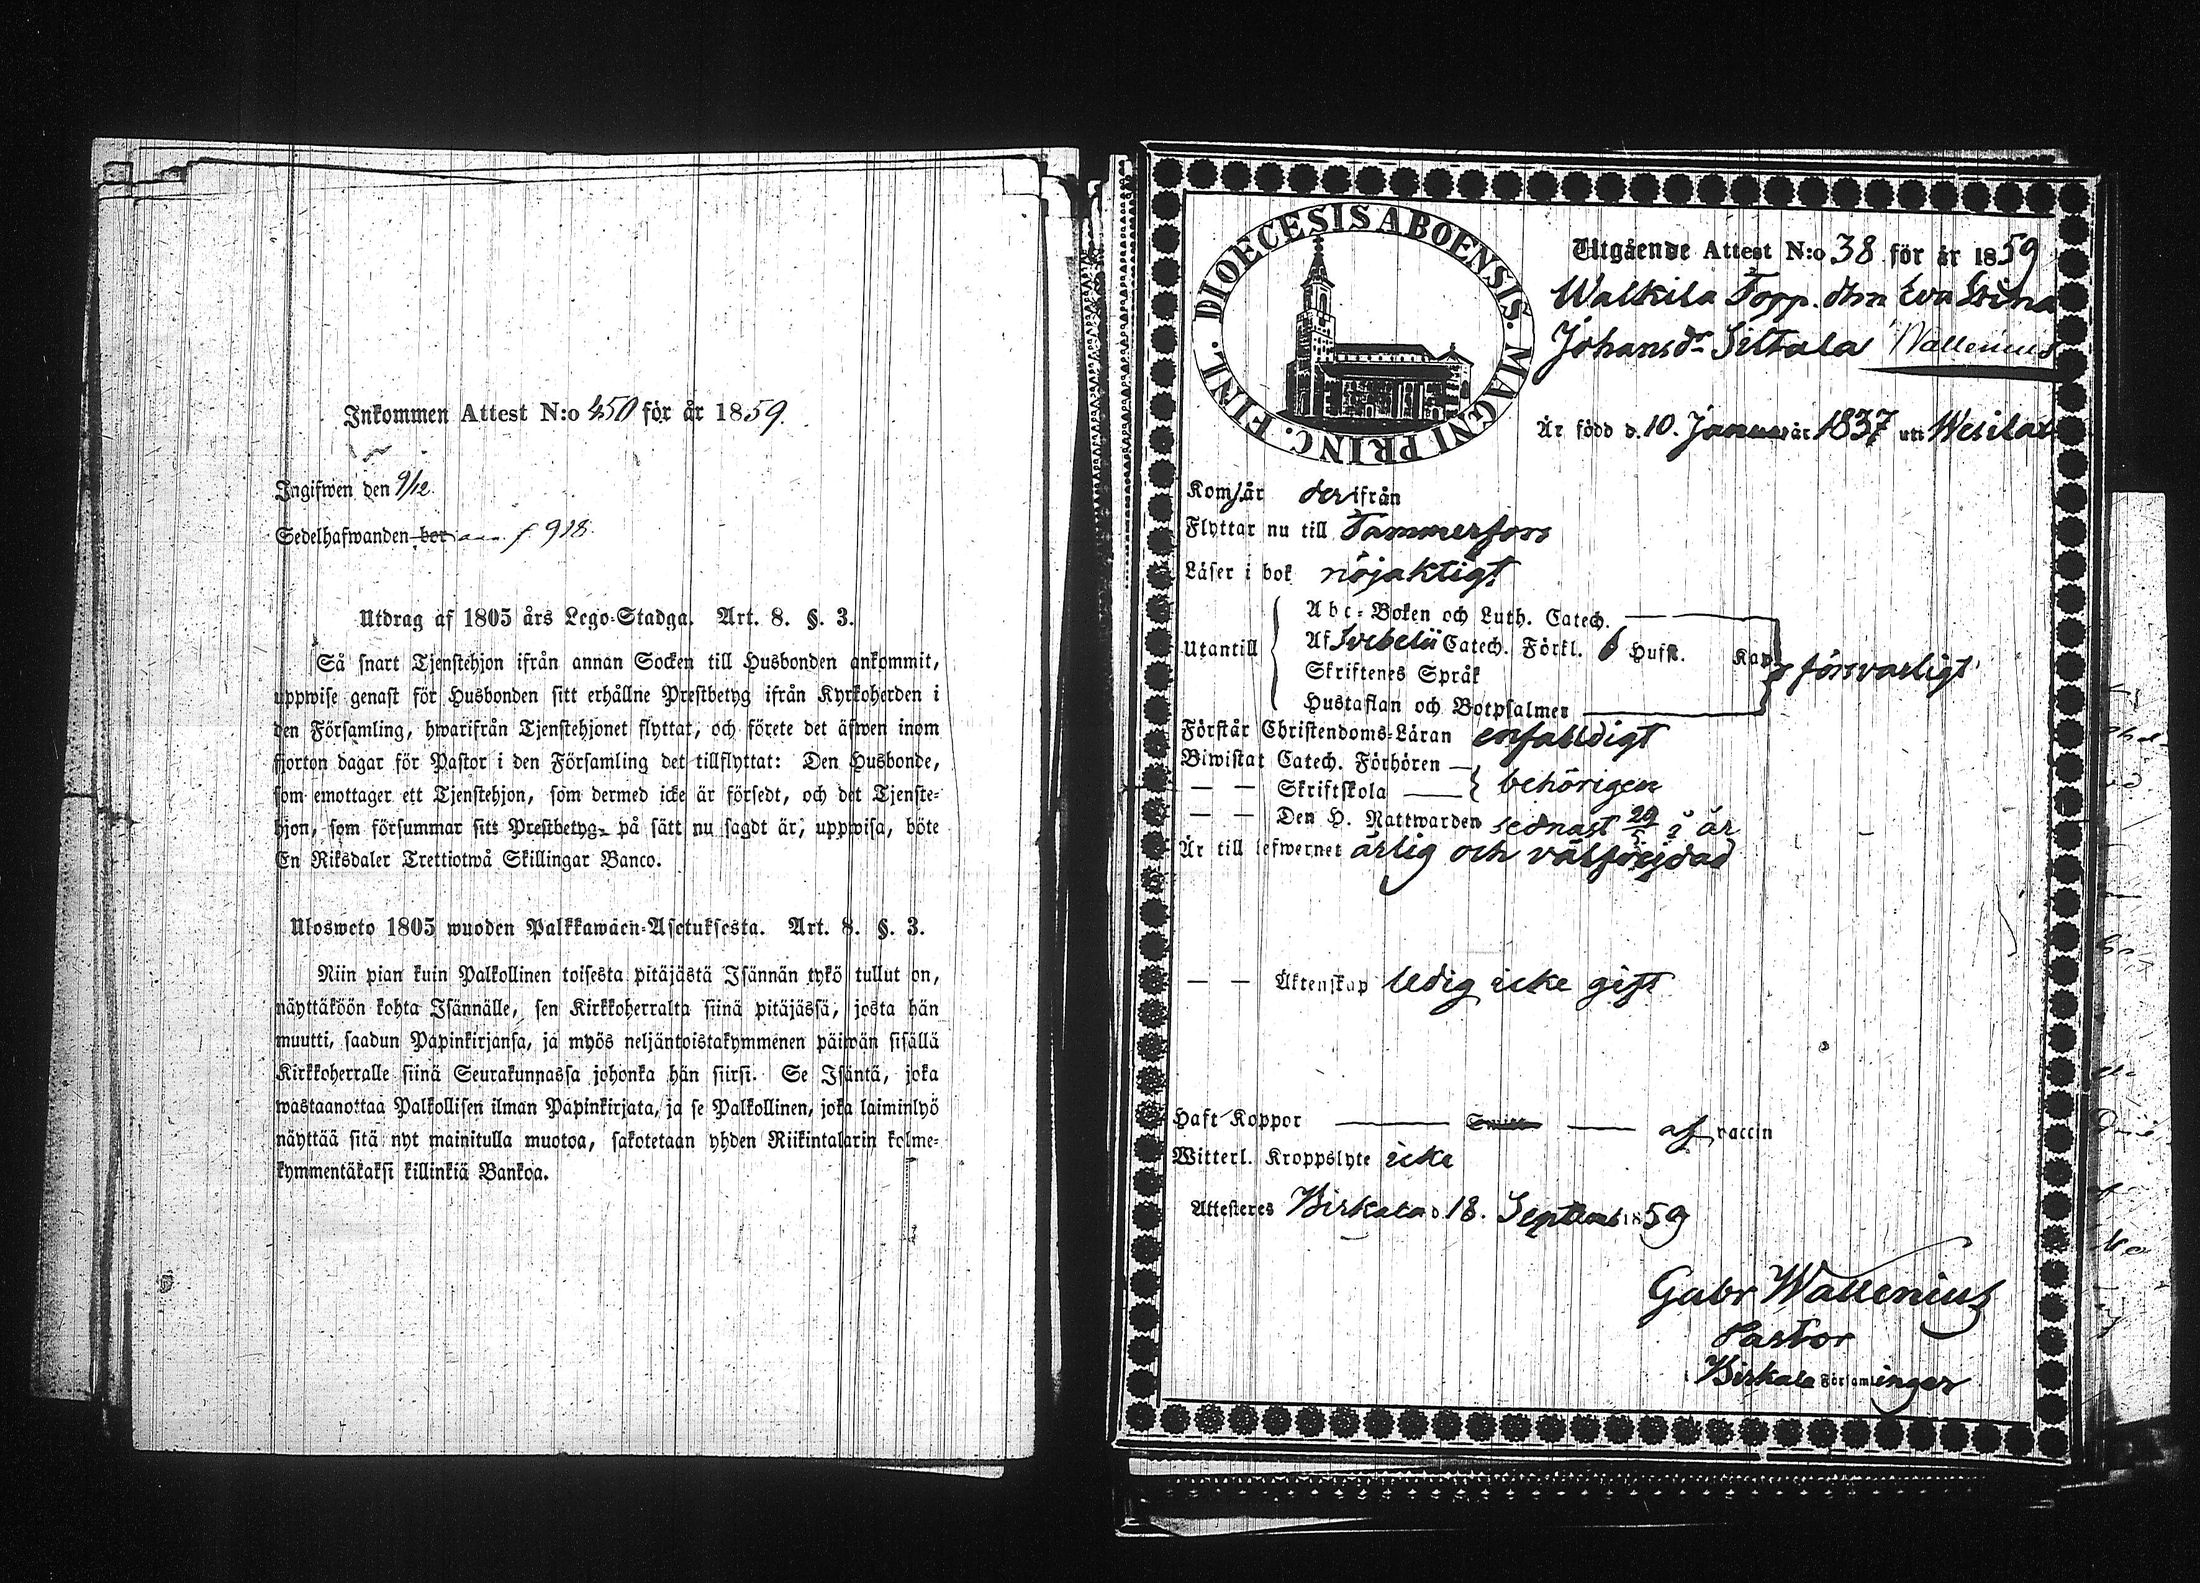 Inkommen Attest N:o 450 för år 1859.
Ingifwen den 9/12
Sedelhafwanden bor f 918.
Utdrag af 1805 års Lego-Stadga. Art. 8. §. 3.
Så snart Tjenstehjon ifrån annan Socken till Husbonden ankommit,
uppwise genast för Husbonden sitt erhållne Prestbetyg ifrån Kyrkoherden i
den Församling, hwarifrån Tjenstehjonet flyttat, och förete det äfwen inom
fjorton dagar för Pastor i den Församling det tillflyttat: Den Husbonde,
som emottager ett Tjenstehjon, som dermed icke är försedt, och det Tjenste-
hjon, som försummar sitt Prestbetyg på sätt nu sagdt är, uppwisa, böte
En Riksdaler Trettiotwå Skillingar Banco.
Ulosweto 1805 wuoden Palkkawäen-Asetuksesta. Art. 8. §. 3.
Niin pian kuin Palkollinen toisesta pitäjästä Isännän tykö tullut on,
näyttäköön kohta Isännälle, sen Kirkkoherralta siinä pitäjässä, josta hän
muutti, saadun Papinkirjansa, ja myös neljäntoistakymmenen päiwän sisällä
Kirkkoherralle siinä Seurakunnassa johonka hän siirsi. Se Isäntä, joka
wastaanottaa Palkollisen ilman Papinkirjata, ja se Palkollinen, joka laiminlyö
näyttää sitä nyt mainitulla muotoa, sakotetaan yhden Riikintalarin kolme-
kymmentäkaksi killinkiä Bankoa.
DIOECESIS ABOENSIS. MAGNI PRINC. FINL.
Utgående Attest N:o 38 för år 1859
Walkila Torp. dtrn Eva Stina
Johansdr Siltala Wallenius
Är född d. 10. Januari år 1837 uti Wesilax
Kom år derifrån
Flyttar nu till Tammerfors
Läser i bok nöjaktigt
Utantill
Abc-Boken och Luth. Catech.
Af Svebelii Catech. Förkl. 6 Hufst. Kap.
Skriftenes Språk
Hustaflan och Botpsalmer
försvarligt
Förstår Christendoms-Läran enfaldigt
Biwistat Catech. Förhören
— — Skriftskola behörigen
— — Den H. Nattwarden sednast 29/5 i år
Är till lefwernet ärlig och välfrejdad
— — Äktenskap ledig icke gift
Haft Koppor — Smitt — af vaccin
Witterl. Kroppslyte icke
Attesteres Birkala d. 18. Septemb 1859
Gabr Wallenius
Pastor
i Birkala Församlingar